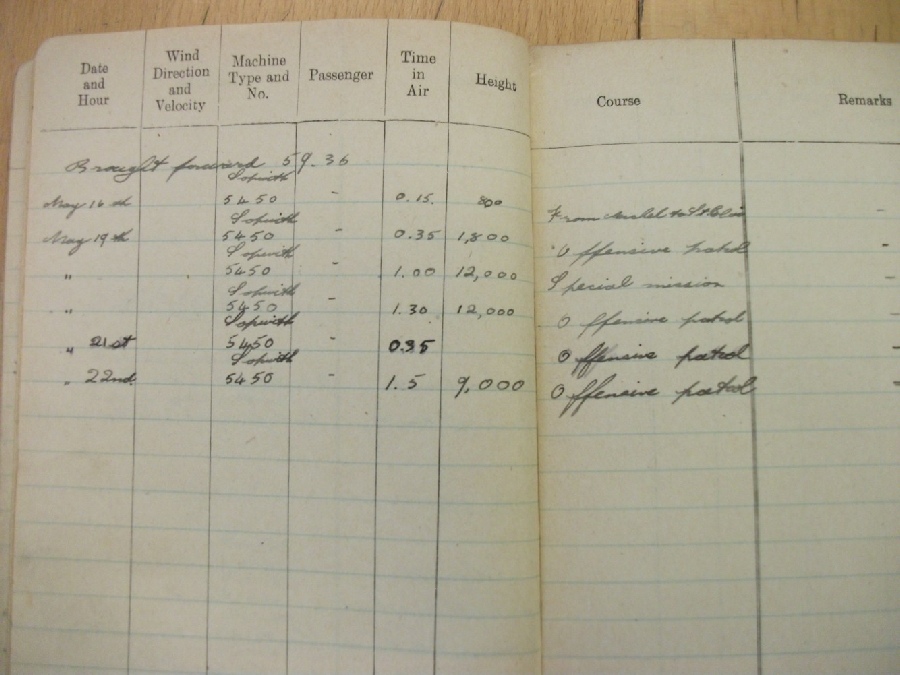 Date and Hour Wind Direction and Velocity Machine Type and No. Passenger Time in Air Height Course Remarks
Brought forward 59.36
Sopwith
May 16th 5450 - 0.15. 800 From to -
Sopwith
May 19th 5450 - 0.35 1,800 Offensive patrol -
Sopwith
" 5450 - 1.00 12,000 Special mission -
Sopwith
" 5450 - 1.30 12,000 Offensive patrol -
Sopwith
" 21st 5450 - 0.35 Offensive patrol -
Sopwith
" 22nd 5450 - 1.5 9,000 Offensive patrol -